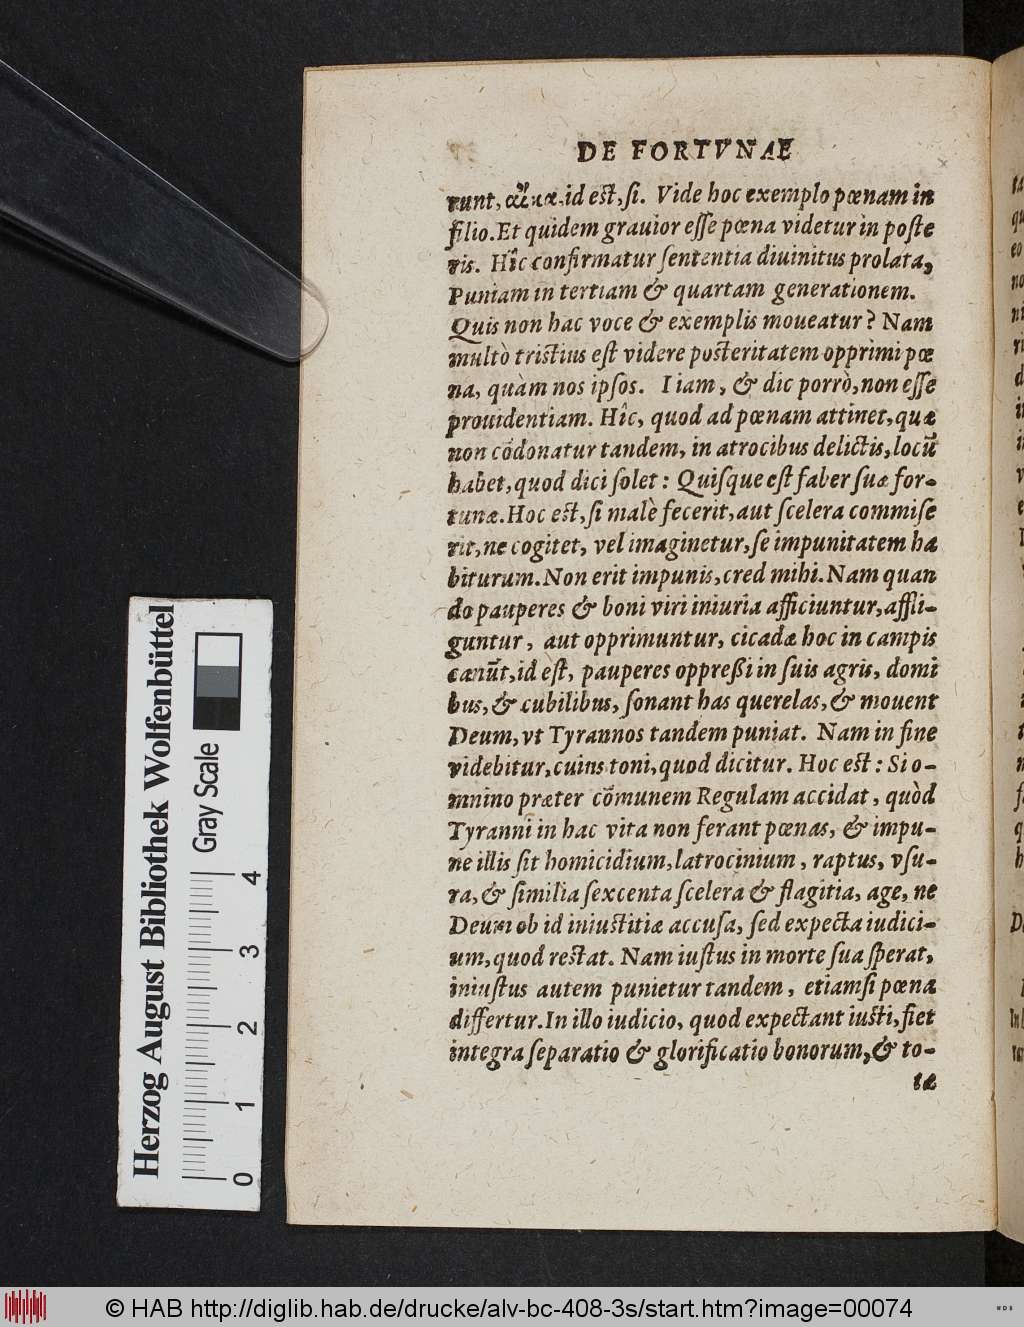 DE FORTVNAE
runt, id est, si. Vide hoc exemplo pœnam in
filio. Et quidem grauior esse pœna videtur in poste
ris. Hîc confirmatur sententia diuinitus prolata,
Puniam in tertiam & quartam generationem.
Quis non hac voce & exemplis moueatur? Nam
multò tristius est videre posteritatem opprimi pœ
na, quàm nos ipsos. I iam, & dic porrò, non esse
prouidentiam. Hîc, quod ad pœnam attinet, quæ
non cōdonatur tandem, in atrocibus delictis, locū
habet, quod dici solet: Quisque est faber suæ for-
tunæ. Hoc est, si malè fecerit, aut scelera commise
rit, ne cogitet, vel imaginetur, se impunitatem ha
biturum. Non erit impunis, cred mihi. Nam quan
do pauperes & boni viri iniuria afficiuntur, affli-
guntur, aut opprimuntur, cicadæ hoc in campis
canūt, id est, pauperes oppreßi in suis agris, domi
bus, & cubilibus, sonant has querelas, & mouent
Deum, vt Tyrannos tandem puniat. Nam in fine
videbitur, cuius toni, quod dicitur. Hoc est: Si o-
mnino præter cōmunem Regulam accidat, quòd
Tyranni in hac vita non ferant pœnas, & impu-
ne illis sit homicidium, latrocinium, raptus, vsu-
ra, & similia sexcenta scelera & flagitia, age, ne
Deum ob id iniustitiæ accusa, sed expecta iudici-
um, quod restat. Nam iustus in morte sua sperat,
iniustus autem punietur tandem, etiamsi pœna
differtur. In illo iudicio, quod expectant iusti, fiet
integra separatio & glorificatio bonorum, & to-
tæ
Herzog August Bibliothek Wolfenbüttel
Gray Scale
0 1 2 3 4
© HAB http://diglib.hab.de/drucke/alv-bc-408-3s/start.htm?image=00074